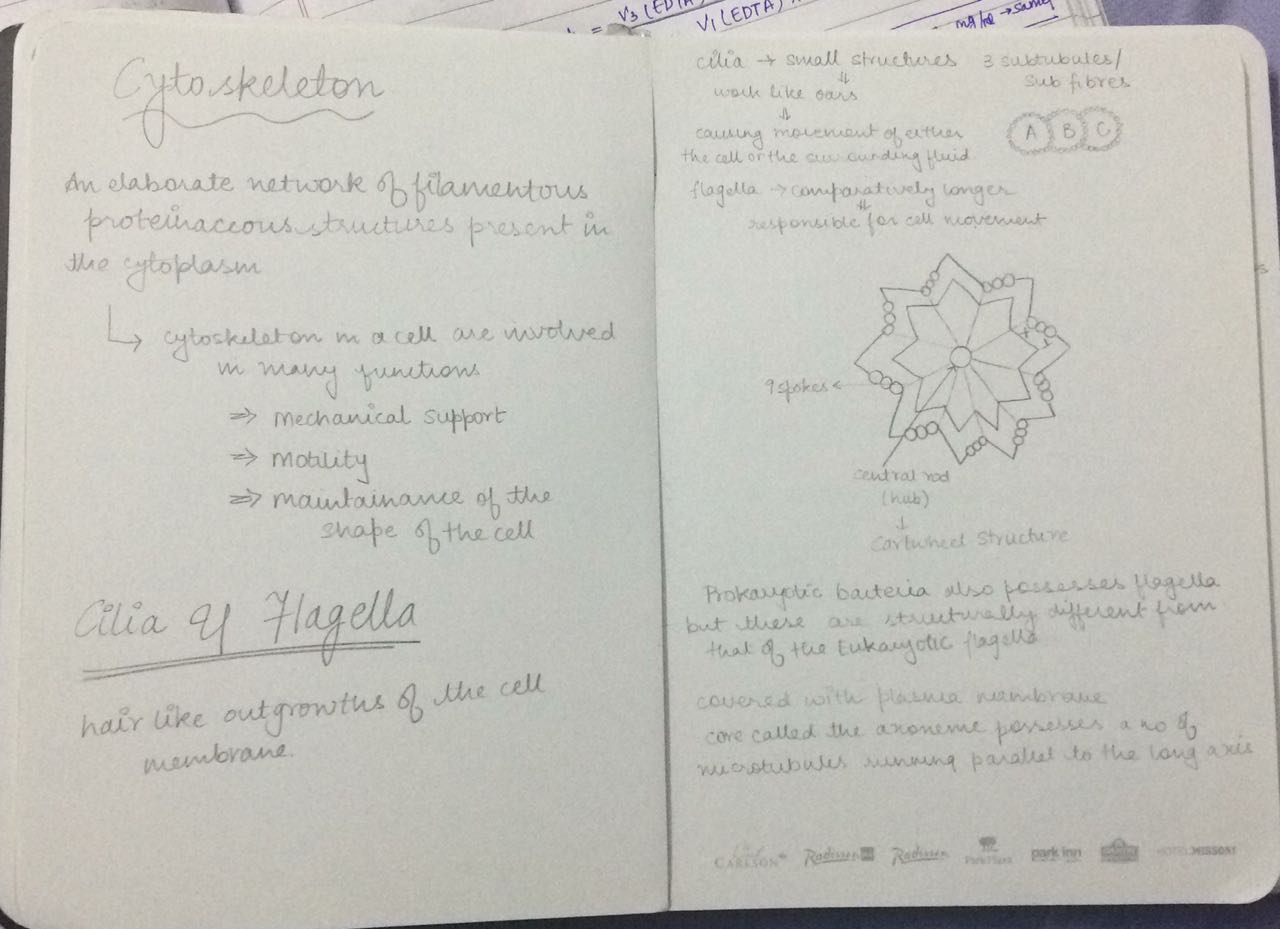 V3 (EDTA)
V1 (EDTA)
Cytoskeleton
An elaborate network of filamentous
proteinaceous structures present in
the cytoplasm
cytoskeleton in a cell are involved
in many functions
⇒ mechanical support
⇒ motility
⇒ maintainance of the
shape of the cell
Cilia & Flagella
hair like outgrowths of the cell
membrane.
cilia → small structures
⇓
work like oars
⇓
causing movement of either
the cell or the surrounding fluid
3 subtubules/
sub fibres
A B C
flagella → comparatively longer
⇓
responsible for cell movement
9 spokes ←
central rod
(hub)
↓
Cartwheel structure
Prokaryotic bacteria also possesses flagella
but these are structurally different from
that of the Eukaryotic flagella
covered with plasma membrane
core called the axoneme possesses a no of
microtubules running parallel to the long axis
CARLSON Radisson Radisson park inn HOTEL MISSONI